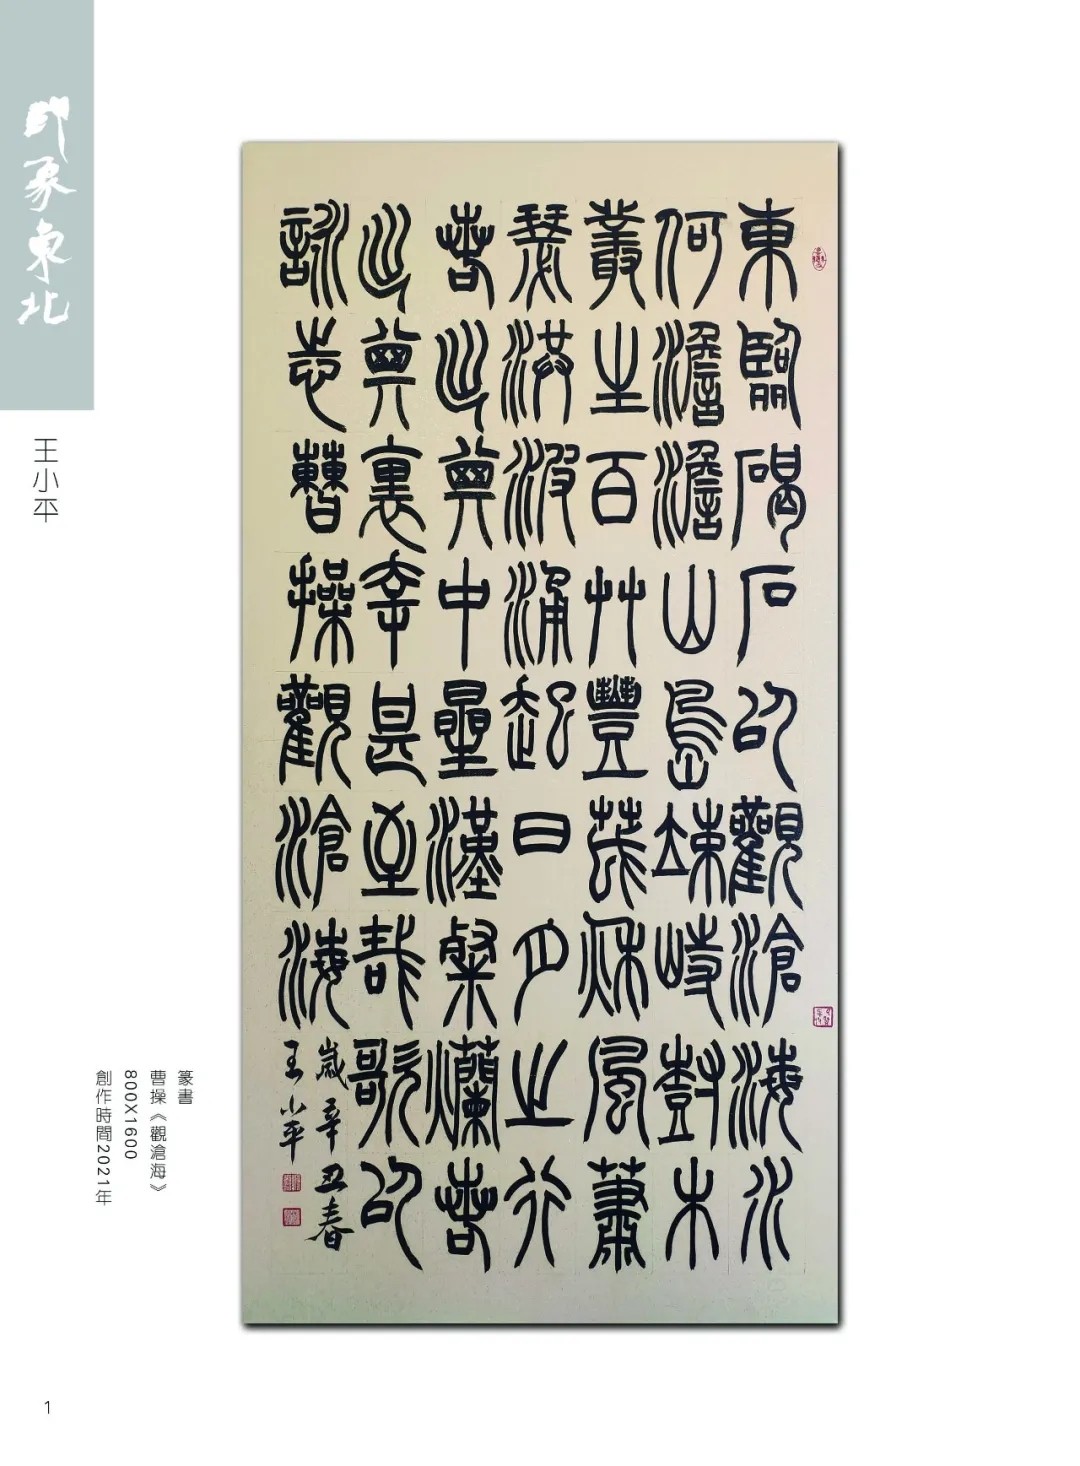 印象東北
王小平
東臨碣石以觀滄海水
何澹澹山島竦峙樹木
叢生百艸豐茂秋風蕭
瑟洪波涌起日月之行
若出其中星漢粲爛若
出其裏幸甚至哉歌以
詠志曹操觀滄海
歲辛丑春
王小平
篆書
曹操《觀滄海》
800X1600
創作時間2021年
1